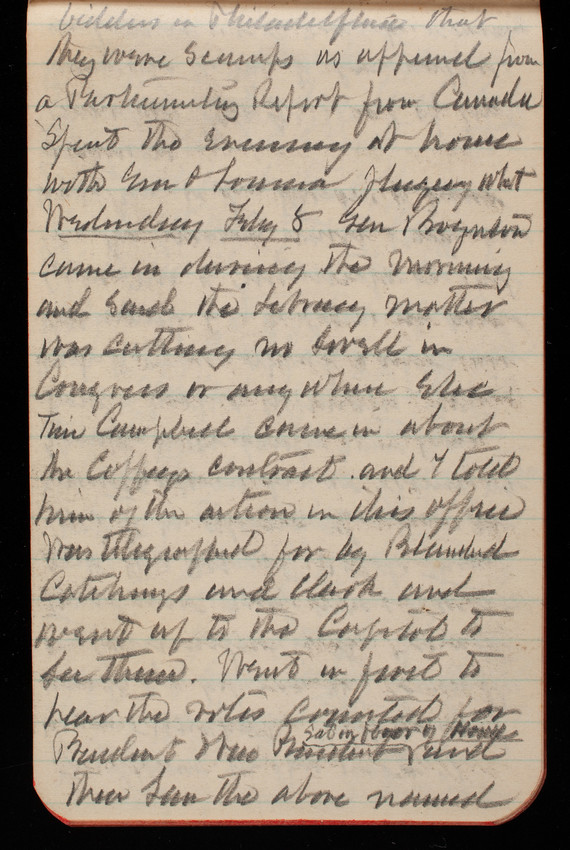 bidders in Philadelphia that
they were scamps as appeared from
a Parliamentary Report from Canada
Spent the evening at home
with Em & Louisa playing whist
Wednesday Feby 8 Gen Boynton
came in during the morning
and said the Library matter
was cutting no swell in
Congress or any where else
Tim Campbell came in about
the Coffeys contract and I told
him of the action in this office
Was telegraphed for by Blanchard
Catchings and Clark and
went up to the Capitol to
see them. Went in first to
hear the votes counted for
Sat in floor of House
President Vice President and
then saw the above named